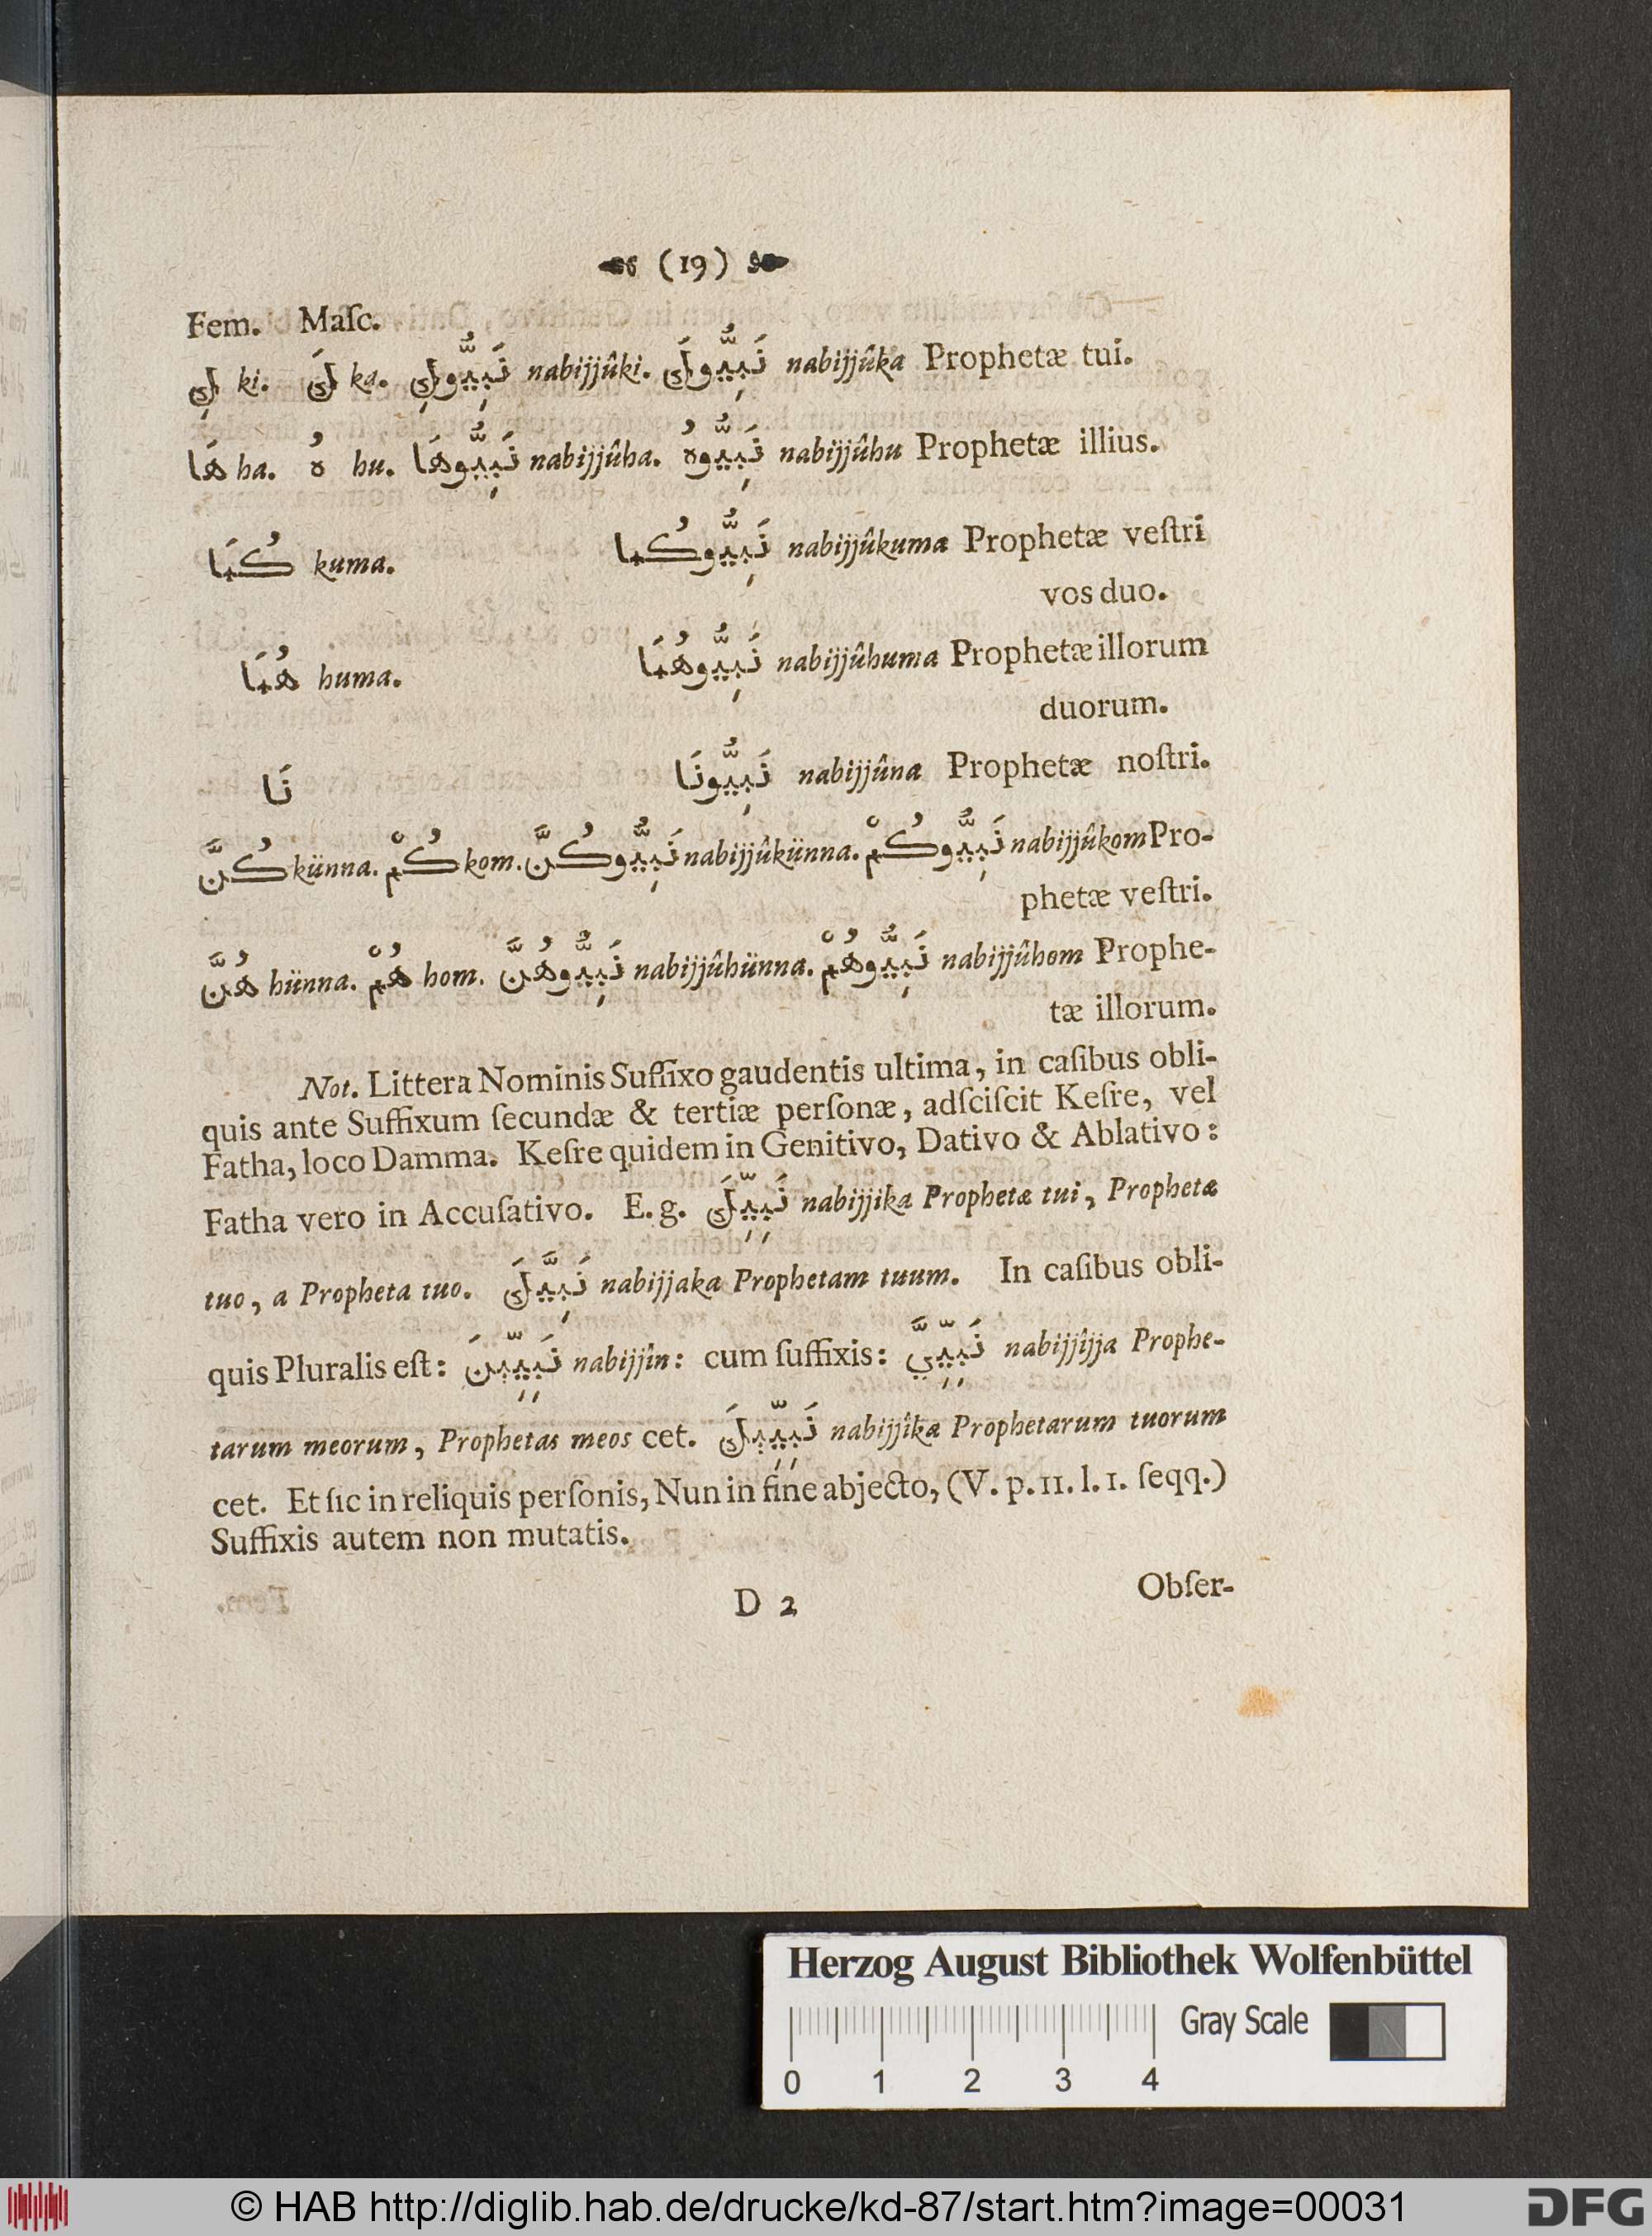 (19)
Fem. Maſc.
كِ ki. كَ ka. نَبِيُّوكِ nabijjûki. نَبِيُّوكَ nabijjûka Prophetæ tui.
هَا ha. هُ hu. نَبِيُّوهَا nabijjûha. نَبِيُّوهُ nabijjûhu Prophetæ illius.
كُمَا kuma. نَبِيُّوكُما nabijjûkuma Prophetæ veſtri
vos duo.
هُمَا huma. نَبِيُّوهُمَا nabijjûhuma Prophetæ illorum
duorum.
نَا نَبِيُّونَا nabijjûna Prophetæ noſtri.
كُنَّ künna. كُمْ kom. نَبِيُّوكُنَّ nabijjûkünna. نَبِيُّوكُمْ nabijjûkom Pro-
phetæ veſtri.
هُنَّ hünna. هُمْ hom. نَبِيُّوهُنَّ nabijjûhünna. نَبِيُّوهُمْ nabijjûhom Prophe-
tæ illorum.
Not. Littera Nominis Suffixo gaudentis ultima, in caſibus obli-
quis ante Suffixum ſecundæ & tertiæ perſonæ, adſciſcit Keſre, vel
Fatha, loco Damma. Keſre quidem in Genitivo, Dativo & Ablativo:
Fatha vero in Accuſativo. E. g. نَبِيِّكَ nabijjika Prophetæ tui, Prophetæ
tuo, a Propheta tuo. نَبِيَّكَ nabijjaka Prophetam tuum. In caſibus obli-
quis Pluralis eſt: نَبِيِّينَ nabijjîn: cum ſuffixis: نَبِيِّيَّ nabijjîjja Prophe-
tarum meorum, Prophetas meos cet. نَبِيِّيكَ nabijjîka Prophetarum tuorum
cet. Et ſic in reliquis perſonis, Nun in fine abjecto, (V. p. 11. l. 1. ſeqq.)
Suffixis autem non mutatis.
D 2 Obſer-
Herzog August Bibliothek Wolfenbüttel
Gray Scale
0 1 2 3 4
© HAB http://diglib.hab.de/drucke/kd-87/start.htm?image=00031
DFG